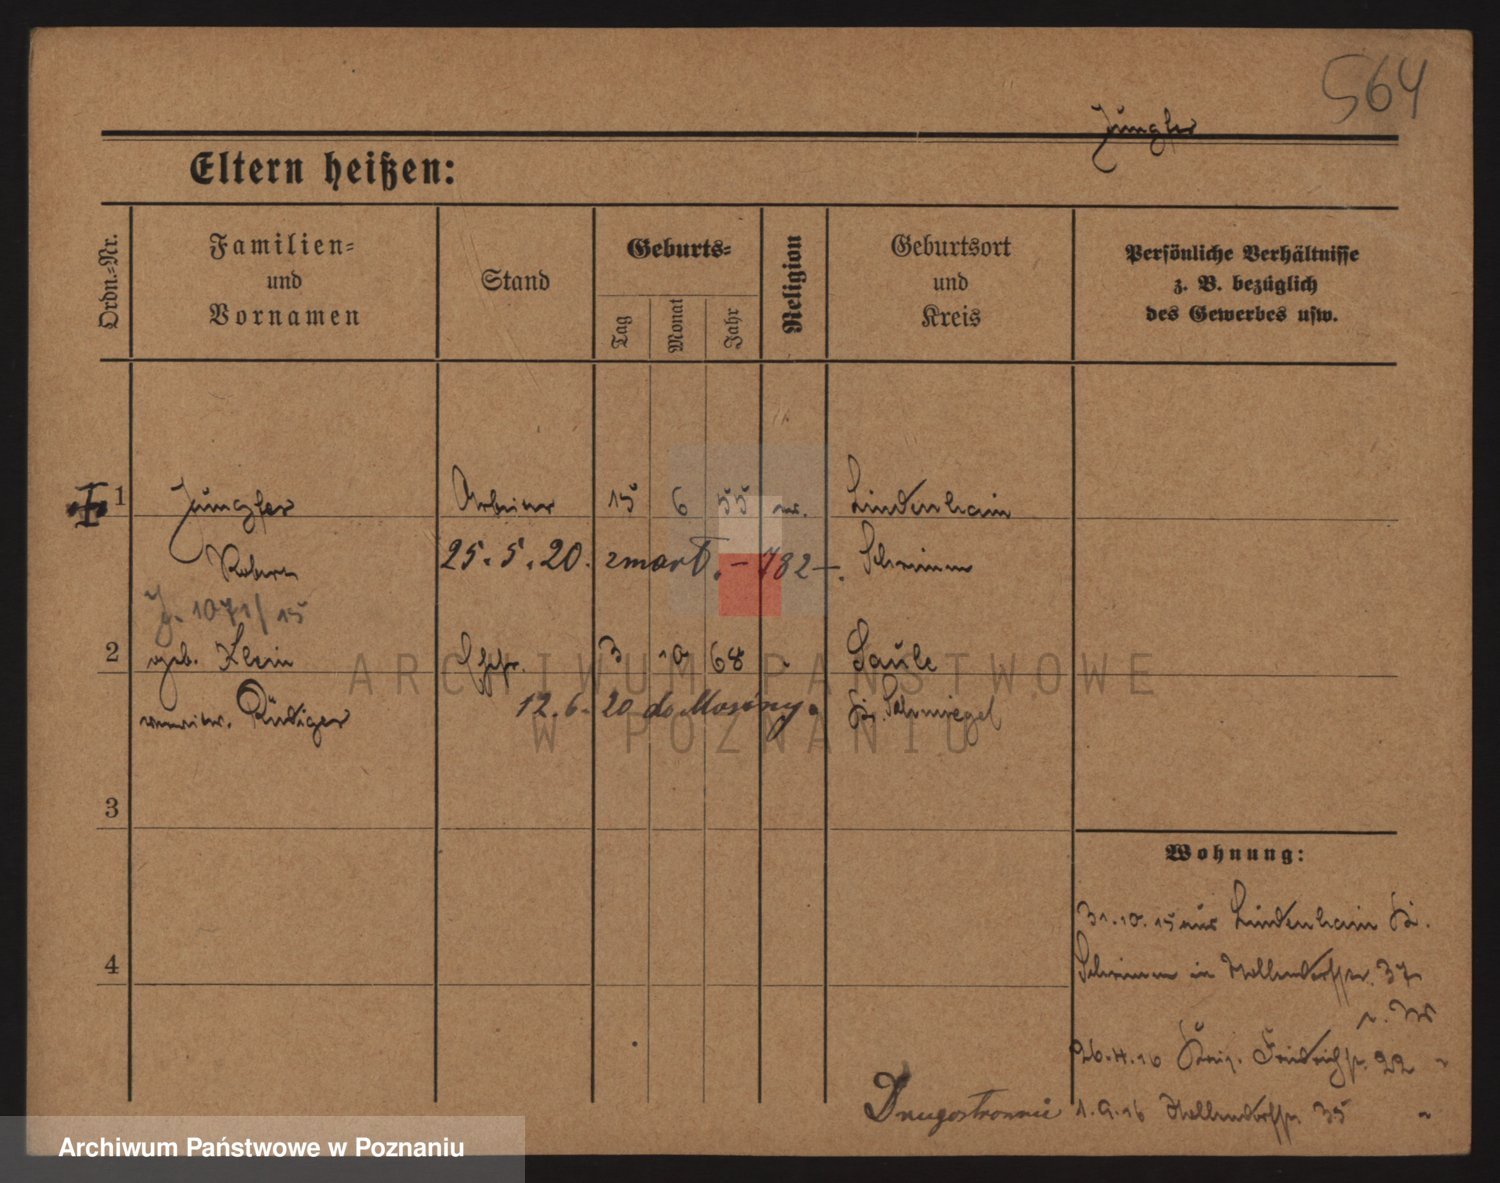 564
Jüngfer
Eltern heißen:
Ordn.=Nr.
Familien=
und
Vornamen
Stand
Geburts=
Tag
Monat
Jahr
Religion
Geburtsort
und
Kreis
Persönliche Verhältnisse
z. B. bezüglich
des Gewerbes usw.
1 Jüngfer Arbeiter 15 6 55 Lindenhain
25. 5. 20. zmarł. – 782 –. Schrimm
J. 1071/15
2 geb. Klein 3 10 68 Saule
verwitw. Rüdiger 12. 6. 20 do Mosiny. Kr. Schmiegel
3
4
Wohnung:
31.10.15 aus Lindenhain Kr.
Schrimm in 37
26.4.16 22
1.9.16 35
Drugostronnie
ARCHIWUM PAŃSTWOWE
W POZNANIU
Archiwum Państwowe w Poznaniu